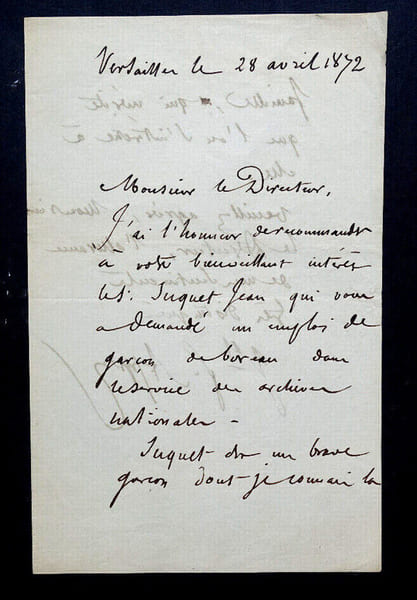 Versailles le 28 avril 1872
Monsieur le Directeur,
J'ai l'honneur de recommander
à votre bienveillant intérêt
le Sr. Suquet Jean qui vous
a demandé un emploi de
garçon de bureau dans
le service des archives
nationales -
Suquet est un brave
garçon dont je connais la